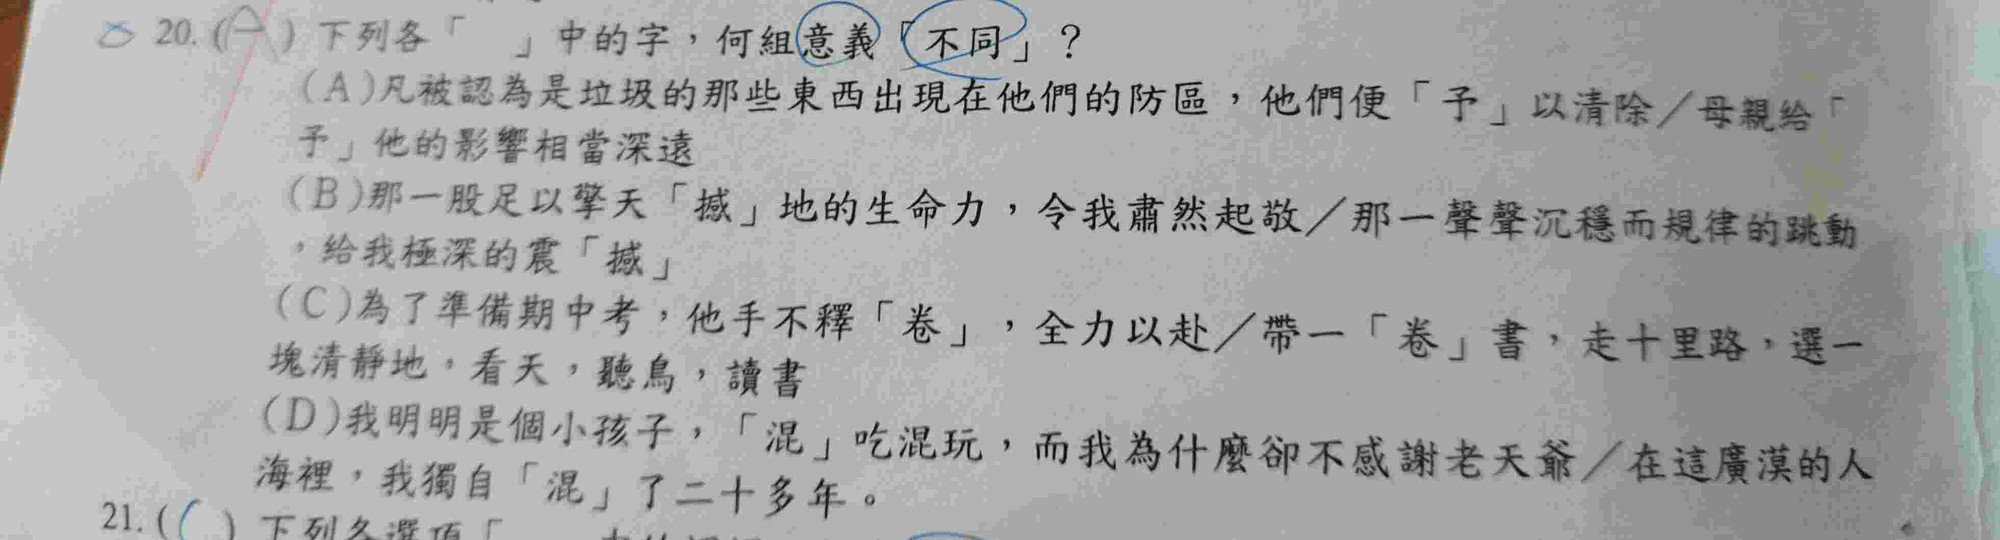 20. (A) 下列各「　」中的字，何組意義「不同」？
(A)凡被認為是垃圾的那些東西出現在他們的防區，他們便「予」以清除／母親給「
予」他的影響相當深遠
(B)那一股足以擎天「撼」地的生命力，令我肅然起敬／那一聲聲沉穩而規律的跳動
，給我極深的震「撼」
(C)為了準備期中考，他手不釋「卷」，全力以赴／帶一「卷」書，走十里路，選一
塊清靜地，看天，聽鳥，讀書
(D)我明明是個小孩子，「混」吃混玩，而我為什麼卻不感謝老天爺／在這廣漠的人
海裡，我獨自「混」了二十多年。
21. ( ) 下列各選項「